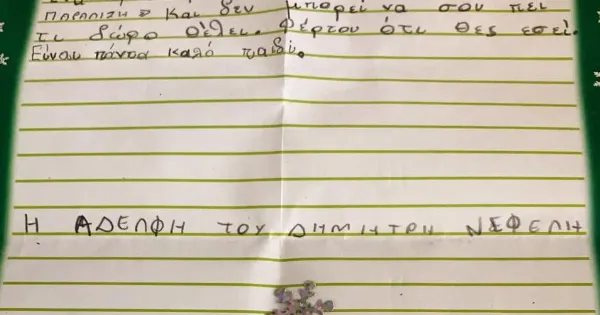 παράλυση και δεν μπορεί να σου πει
τι δώρο θέλει. Φέρτου ότι θες εσεί.
Είναι πάντα καλό παιδί.
Η ΑΔΕΛΦΗ ΤΟΥ ΔΗΜΗΤΡΗ ΝΕΦΕΛΗ